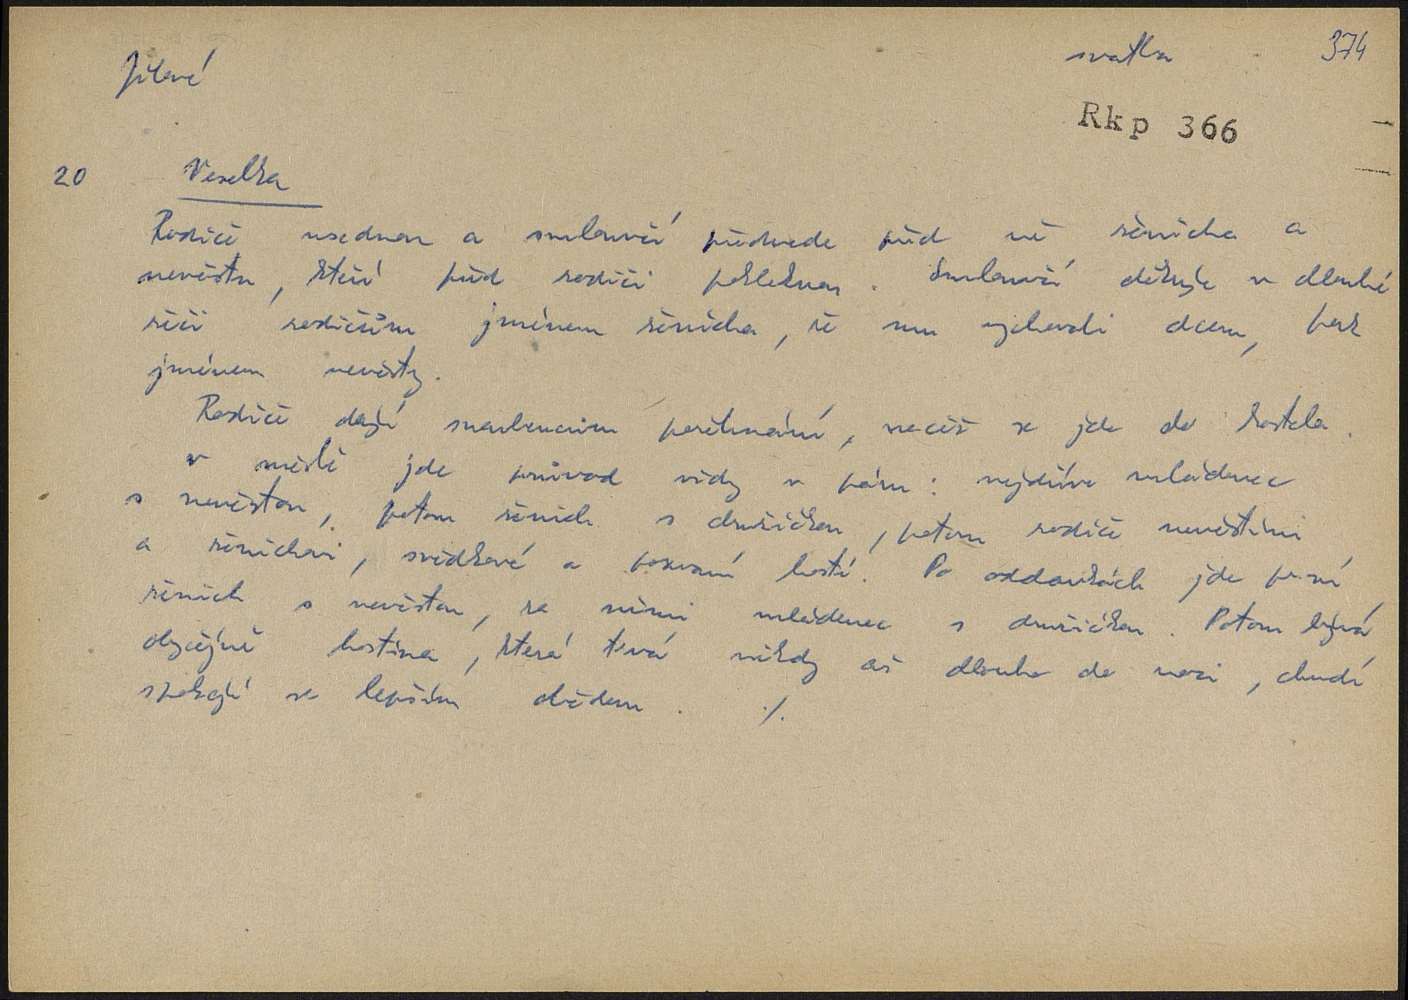 Jílové
svatba
374
Rkp 366
20 Veselka
Rodiče usednou a smluvčí předvede před ně ženicha a
nevěstu, kteří před rodiči pokleknou. Smluvčí děkuje v dlouhé
řeči rodičům jménem ženicha, že mu vychovali dceru, pak
jménem nevěsty.
Rodiče dají snoubencům požehnání, načež se jde do kostela.
V městě jde průvod vždy v páru: nejdříve mládenec
s nevěstou, potom ženich s družičkou, potom rodiče nevěstini
a ženichovi, svědkové a pozvaní hosté. Po oddavkách jde první
ženich s nevěstou, za nimi mládenec s družičkou. Potom bývá
obyčejně hostina, která trvá někdy až dlouho do noci, chudí
spokojí se lepším obědem. ./.